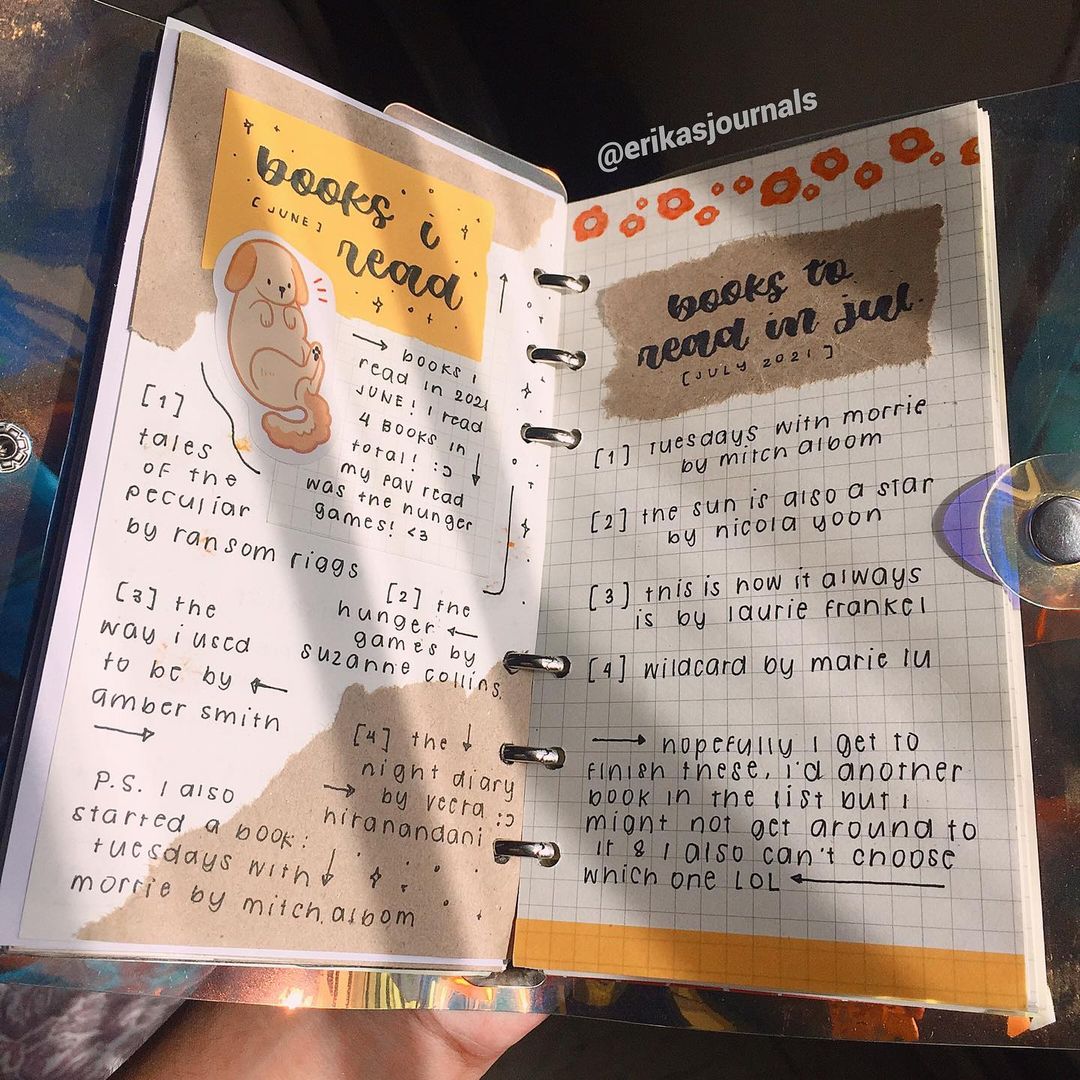 @erikasjournals
books i
[JUNE]
read
→ books i
read in 2021
JUNE! I read
4 BOOKS in ↓
total! :)
my fav read
was the hunger
games! <3
[1]
tales
of the
peculiar
by ransom riggs
[2] the
hunger ←
games by
suzanne collins.
[3] the
way i used
to be by ←
amber smith
→
[4] the ↓
night diary
→ by veera :)
hiranandani
P.S. I also
started a book:
tuesdays with ↓
morrie by mitch albom
books to
read in jul.
[JULY 2021]
[1] Tuesdays with morrie
by mitch albom
[2] the sun is also a star
by nicola yoon
[3] this is how it always
is by laurie frankel
[4] wildcard by marie lu
→ hopefully I get to
finish these, i'd another
book in the list but I
might not get around to
it & I also can't choose
which one LOL ←